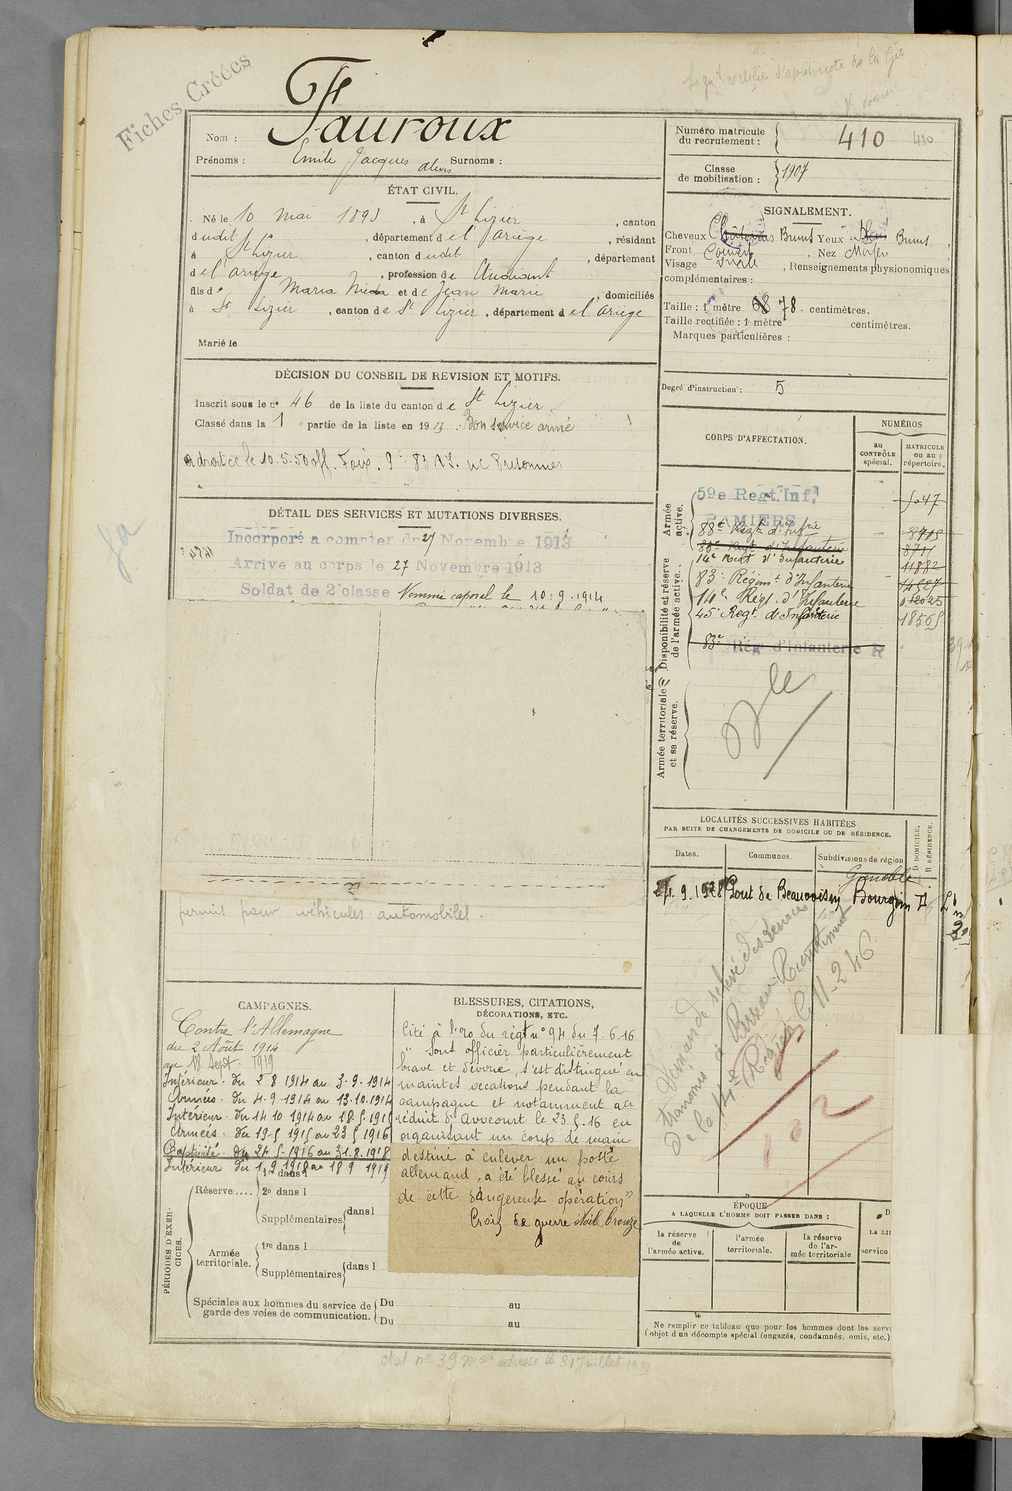 Fiches Créées
Nom : Fauroux
Prénoms : Emile Jacques Alexis Surnoms :
Numéro matricule du recrutement : 410 410
Classe de mobilisation : 1907
ÉTAT CIVIL.
Né le 10 mai 1893, à St Lizier, canton
dudit St Lizier, département de l'Ariège, résidant
à St Lizier, canton dudit, département
de l'Ariège, profession de
fils de Maria et de Jean Marie, domiciliés
à St Lizier, canton de St Lizier, département de l'Ariège
Marié le
SIGNALEMENT.
Cheveux Châtains Bruns Yeux Bleus Bruns
Front, Nez Moyen
Visage ovale, Renseignements physionomiques
complémentaires :
Taille : 1 mètre 68 78 centimètres.
Taille rectifiée : 1 mètre centimètres.
Marques particulières :
Degré d'instruction : 5
DÉCISION DU CONSEIL DE REVISION ET MOTIFS.
Inscrit sous le n° 46 de la liste du canton de St Lizier
Classé dans la 1e partie de la liste en 1913. Bon service armé
a droit cc le 10.5.50 off. Foix. pc Prisonnier
DÉTAIL DES SERVICES ET MUTATIONS DIVERSES.
Incorporé a compter du 27 Novembre 1913
Arrivé au corps le 27 Novembre 1913
Soldat de 2e classe Nommé caporal le 10.9.1914
CORPS D'AFFECTATION.
NUMÉROS
au CONTRÔLE spécial.
MATRICULE ou au répertoire.
Armée active.
59e Regt. Inf. 5047
PAMIERS
88e Régt d'Inftrie 8715
88e Régt d'Infanterie 8711
14e Régt d'Infanterie 11882
Disponibilité et réserve de l'armée active.
83e Régiment d'Infanterie
14e Régt d'Infanterie
45e Régt d'Infanterie 18505
83e Rég. d'Infanterie
Armée territoriale et sa réserve.
LOCALITÉS SUCCESSIVES HABITÉES
PAR SUITE DE CHANGEMENTS DE DOMICILE OU DE RÉSIDENCE.
Dates. Communes. Subdivisions de région D DOMICILE. R RÉSIDENCE.
Grenoble
24.9.1928 Pont de Beauvoisin Bourgoin D
Demande relevé des services
transmis à Bureau Recrutement
de la 17e Région le 11-2-46
permis pour véhicules automobiles.
CAMPAGNES.
Contre l'Allemagne
du 2 Août 1914
au 18 Sept. 1919
Intérieur du 2 8 1914 au 3.9.1914
Armées du 4.9.1914 au 13.10.1914
Intérieur du 14 10 1914 au 18.5.1915
Armées du 19.5 1915 au 23.5 1916
Captivité du 24.5.1916 au 31.8.1918
Intérieur du 1.9 1918 au 18 9 1919
BLESSURES, CITATIONS, DÉCORATIONS, ETC.
Cité à l'oro du régt n° 94 du 7.6.16
" Sous officier particulièrement
brave et dévoué, s'est distingué en
maintes occasions pendant la
campagne et notamment au
réduit d'Avocourt le 23.5.16 en
organisant un coup de main
destiné à enlever un poste
allemand, a été blessé au cours
de cette dangereuse opération"
Croix de guerre étoile bronze
PÉRIODES D'EXERCICES.
Réserve....
1re dans l
2e dans l
Supplémentaires dans l
Armée territoriale.
1re dans l
Supplémentaires dans l
Spéciales aux hommes du service de garde des voies de communication.
Du au
Du au
ÉPOQUE
A LAQUELLE L'HOMME DOIT PASSER DANS :
la réserve de l'armée active.
l'armée territoriale.
la réserve de l'armée territoriale
Ne remplir ce tableau que pour les hommes dont les serv
l'objet d'un décompte spécial (engagés, condamnés, omis, etc.)